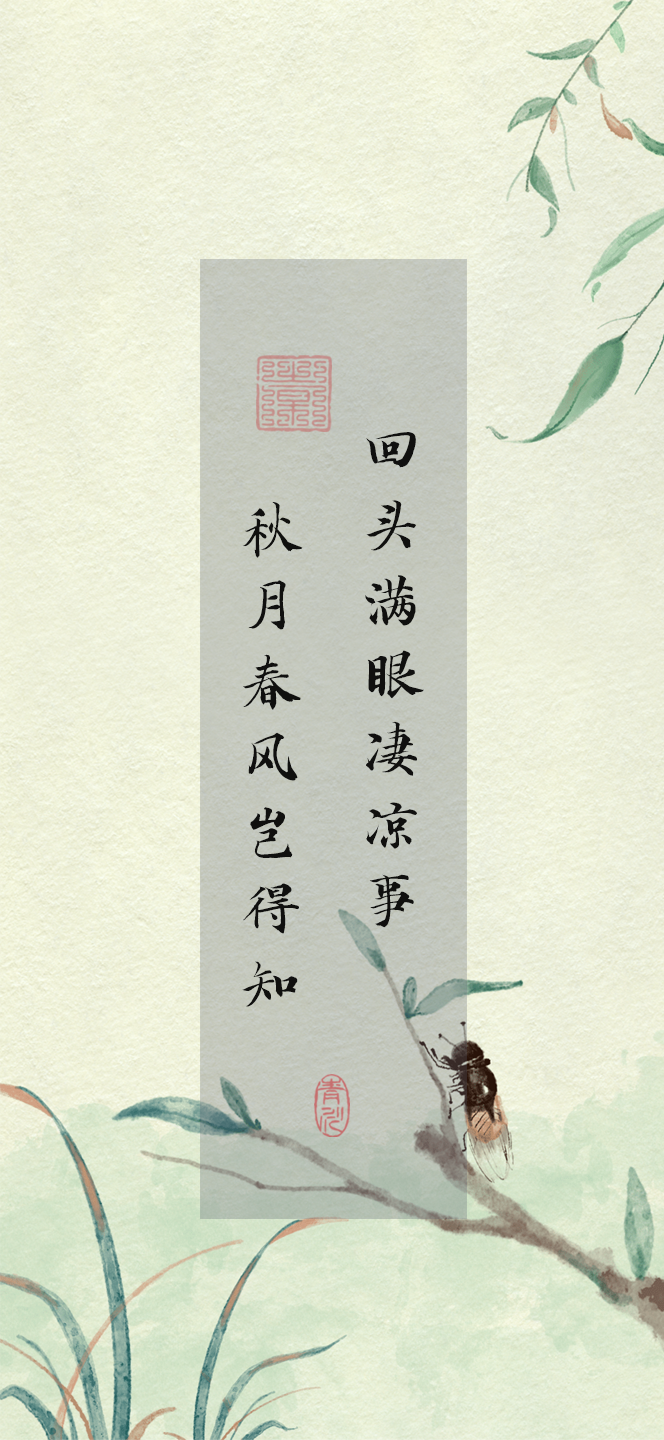 回头满眼凄凉事
秋月春风岂得知